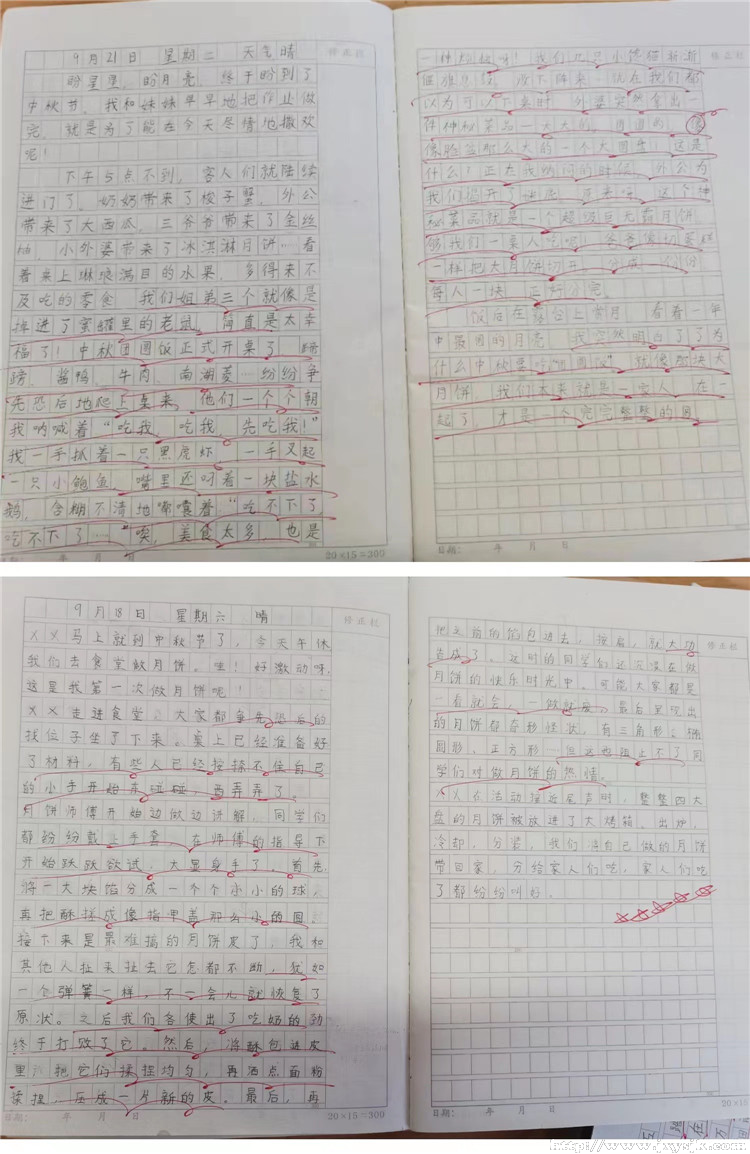 9月21日 星期二 天气晴
修正栏
盼星星,盼月亮,终于盼到了
中秋节。我和妹妹早早地把作业做
完,就是为了能在今天尽情地撒欢
呢!
下午5点不到,客人们就陆续
进门了。奶奶带来了梭子蟹,外公
带来了大西瓜,三爷爷带来了金丝
柚,小外婆带来了冰淇淋月饼…看
着桌上琳琅满目的水果,多得来不
及吃的零食,我们姐弟三个就像是
掉进了蜜罐里的老鼠,简直是太幸
福了!中秋团圆饭正式开桌了,螃
蟹、酱鸭、牛肉、南湖菱…纷纷争
先恐后地爬上桌来,他们一个个朝
我呐喊着“吃我,吃我,先吃我!”
我一手抓着一只黑虎虾,一手叉起
一只小鲍鱼,嘴里还叼着一块盐水
鹅,含糊不清地嘟囔着“吃不下了
吃不下了…”唉,美食太多,也是
日期: 年 月 日
20×15=300
修正栏
一种烦恼呀!我们几只小馋猫渐渐
都以为可以下桌时,外婆突然拿出一
件神秘菜品—大大的,圆圆的,像
像脸盆那么大的一个大圆盘!这是
什么!正在我纳闷的时候,外公为
我们揭开了
秘菜品就是一个超级巨无霸月饼,
够我们一桌人吃呢!爷爷像切蛋糕
一样把大月饼切开,分成一份份
每人一块,正好分完。
饭后在露台上赏月,看着一年
中最圆的月亮,我突然明白了了为
什么中秋要吃“团圆饭”,就像那块大
月饼,我们本来就是一家人,在一
起了,才是一个完完整整的圆。
日期: 年 月 日
20×15=300
9月18日 星期六 晴
修正栏
XX马上就到中秋节了,今天午休
我们去食堂做月饼。哇!好激动呀,
这是我第一次做月饼呢!
XX走进食堂,大家都争先恐后的
找位子坐了下来。桌上已经准备好
了材料,有些人已经按捺不住自己
的小手开始东碰碰,西弄弄了。
月饼师傅开始边做边讲解,同学们
都纷纷戴上手套,在师傅的指导下
开始跃跃欲试,大显身手了。首先,
将一大块馅分成一个个小小的球,
再把酥搓成像指甲盖那么小的圆,
接下来是最难搞的月饼皮了,我和
其他人扯来扯去它怎都不断,犹如
一个弹簧一样,不一会儿就恢复了
原状。之后我们各使出了吃奶的劲
终于打败了它。然后,将酥包进皮
里,把它们揉捏均匀,再洒点面粉
揉捏,压成一个新的皮。最后,再
日期: 年 月 日
20×15=300
修正栏
把之前的馅包进去,按扁,就大功
告成了。这时的同学们还沉浸在做
月饼的快乐时光中,可能大家都是
一看就会,一做就废。最后呈现出
的月饼都奇形怪状,有三角形,椭
圆形,正方形…但这也阻止不了同
学们对做月饼的热情。
XX在活动接近尾声时,整整四大
盘的月饼被放进了大烤箱。出炉,
冷却,分装,我们将自己做的月饼
带回家,分给家人们吃,家人们吃
了都纷纷叫好。
日期: 年 月 日
20×15